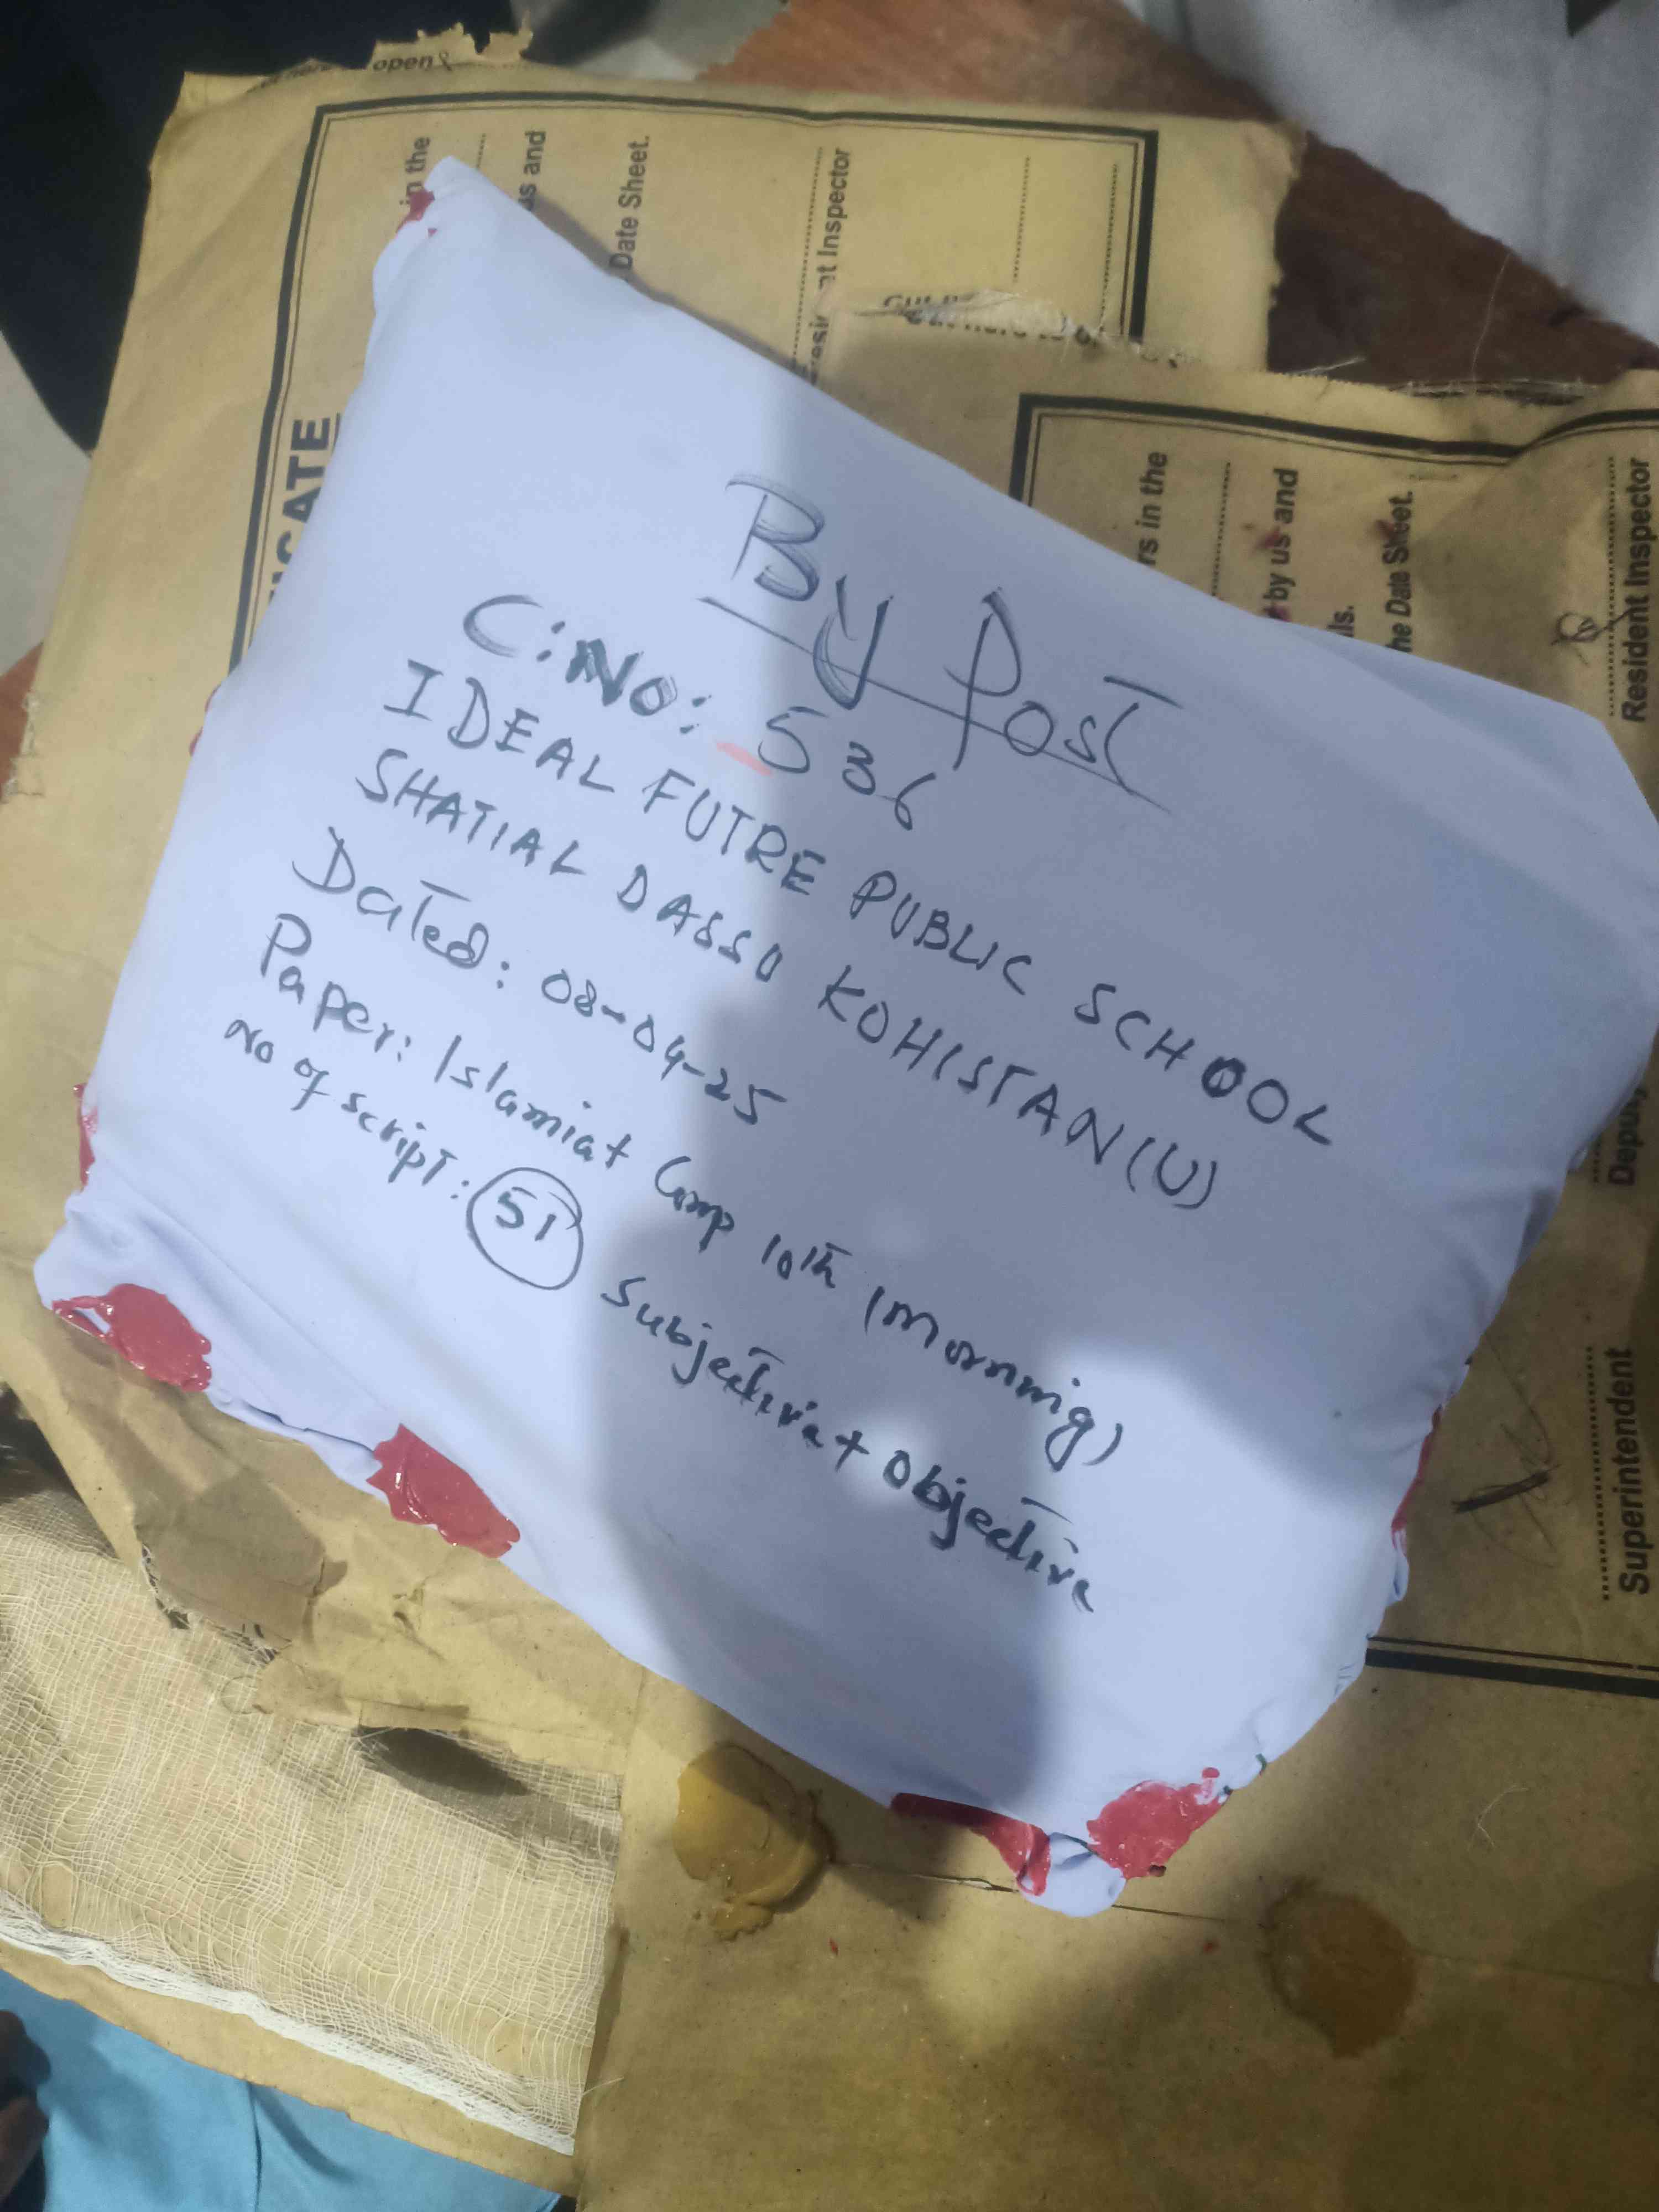 By Post
C: No: 536
IDEAL FUTRE PUBLIC SCHOOL
SHATIAL DASSO KOHISTAN (U)
Dated: 08-04-25
Paper: Islamiat Comp 10th (Morning)
No of script: 51 Subjective + Objective
open
in the
us and
Date Sheet.
Inspector
rs in the
by us and
ls.
the Date Sheet.
Resident Inspector
Superintendent